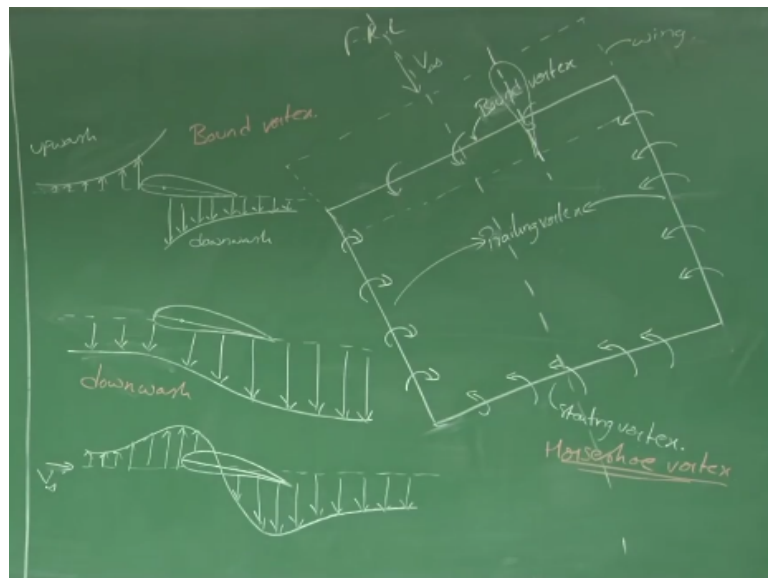 upwash
Bound vortex.
downwash
downwash
V∞
V∞
wing.
Bound vortex
Trailing vortex
starting vortex.
Horseshoe vortex